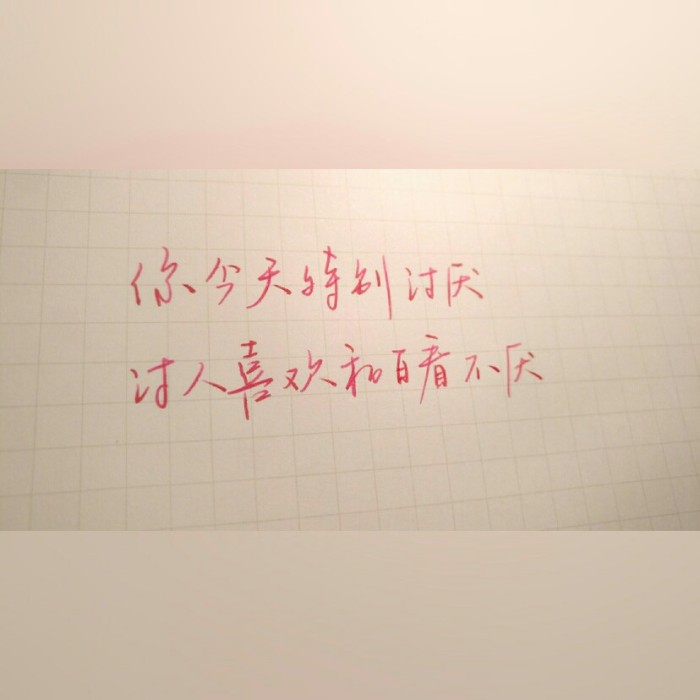 你今天特别讨厌
讨人喜欢和百看不厌